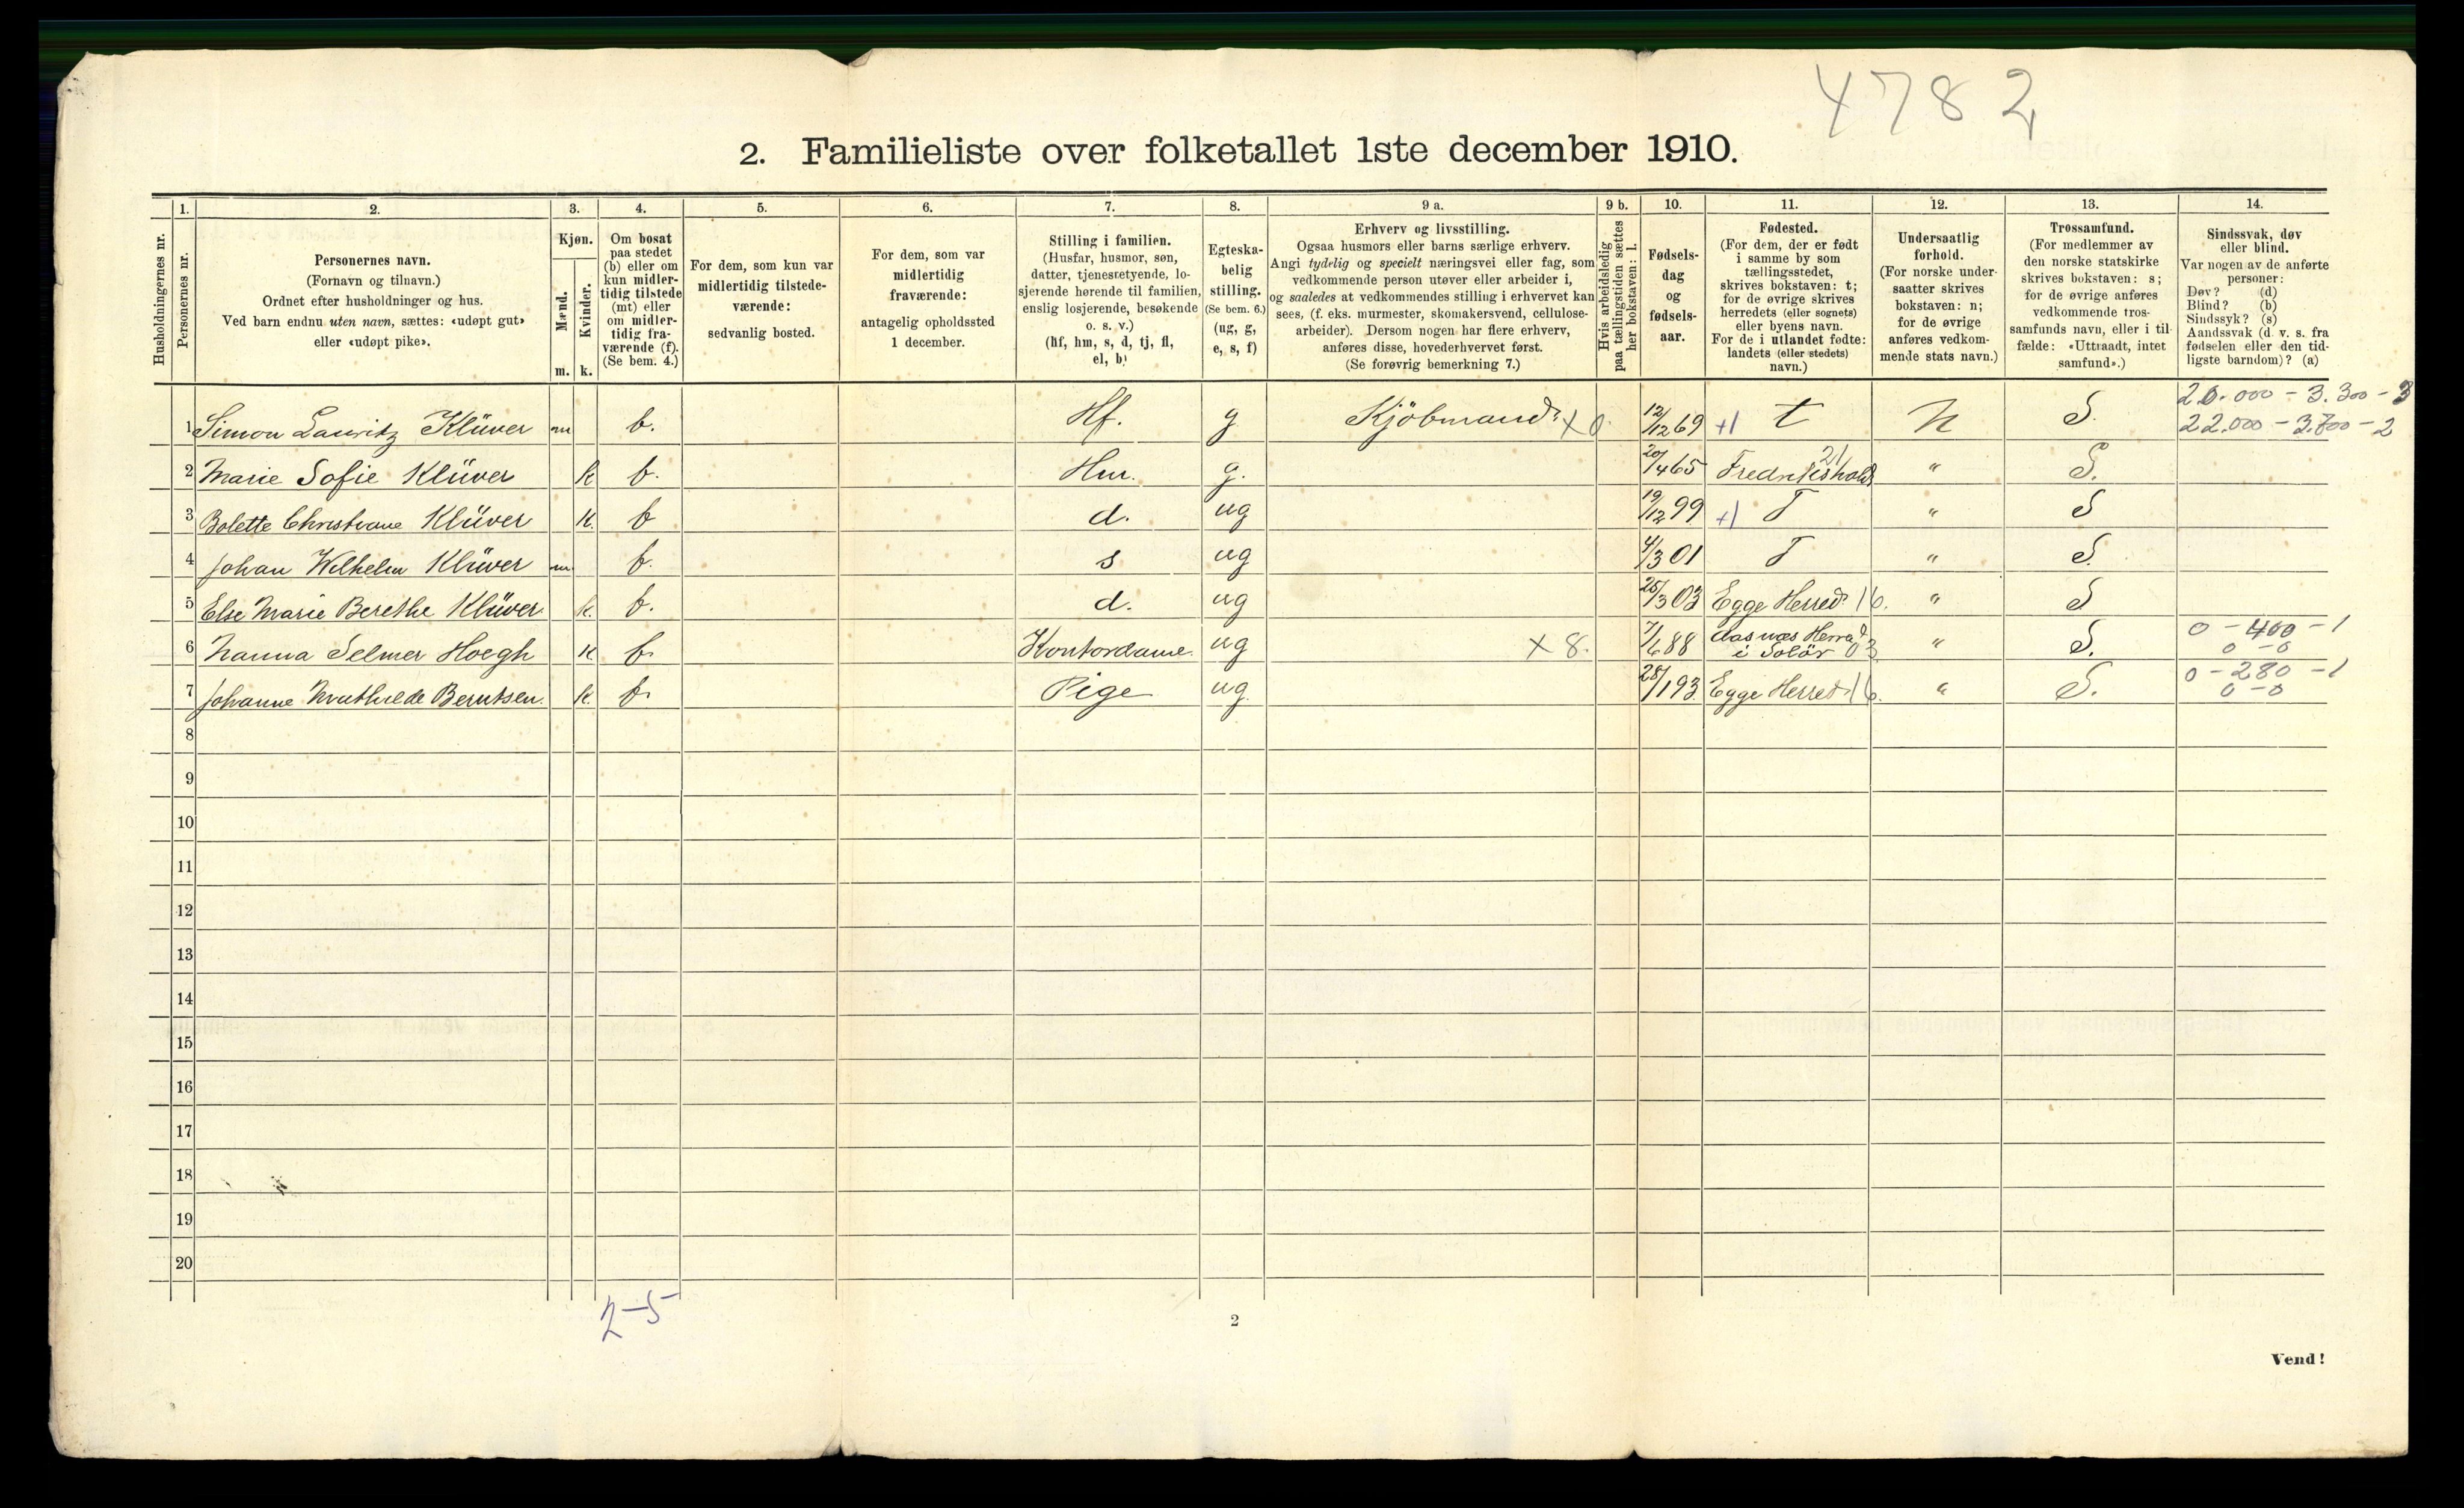 4782
2. Familieliste over folketallet 1ste december 1910.
1. 2. 3. 4. 5. 6. 7. 8. 9 a. 9 b. 10. 11. 12. 13. 14.
Husholdningernes nr.
Personernes nr.
Personernes navn.
(Fornavn og tilnavn.)
Ordnet efter husholdninger og hus.
Ved barn endnu uten navn, sættes: «udøpt gut»
eller «udøpt pike».
Kjøn.
Mænd.
Kvinder.
m. k.
Om bosat
paa stedet
(b) eller om
kun midler-
tidig tilstede
(mt) eller
om midler-
tidig fra-
værende (f).
(Se bem. 4.)
For dem, som kun var
midlertidig tilstede-
værende:
sedvanlig bosted.
For dem, som var
midlertidig
fraværende:
antagelig opholdssted
1 december.
Stilling i familien.
(Husfar, husmor, søn,
datter, tjenestetyende, lo-
sjerende hørende til familien,
enslig losjerende, besøkende
o. s. v.)
(hf, hm, s, d, tj, fl,
el, b)
Egteska-
belig
stilling.
(Se bem. 6.)
(ug, g,
e, s, f)
Erhverv og livsstilling.
Ogsaa husmors eller barns særlige erhverv.
Angi tydelig og specielt næringsvei eller fag, som
vedkommende person utøver eller arbeider i,
og saaledes at vedkommendes stilling i erhvervet kan
sees, (f. eks. murmester, skomakersvend, cellulose-
arbeider). Dersom nogen har flere erhverv,
anføres disse, hovederhvervet først.
(Se forøvrig bemerkning 7.)
Hvis arbeidsledig
paa tællingstiden sættes
her bokstaven: l.
Fødsels-
dag
og
fødsels-
aar.
Fødested.
(For dem, der er født
i samme by som
tællingsstedet,
skrives bokstaven: t;
for de øvrige skrives
herredets (eller sognets)
eller byens navn.
For de i utlandet fødte:
landets (eller stedets)
navn.)
Undersaatlig
forhold.
(For norske under-
saatter skrives
bokstaven: n;
for de øvrige
anføres vedkom-
mende stats navn.)
Trossamfund.
(For medlemmer av
den norske statskirke
skrives bokstaven: s;
for de øvrige anføres
vedkommende tros-
samfunds navn, eller i til-
fælde: «Uttraadt, intet
samfund».)
Sindssvak, døv
eller blind.
Var nogen av de anførte
personer:
Døv? (d)
Blind? (b)
Sindssyk? (s)
Aandssvak (d. v. s. fra
fødselen eller den tid-
ligste barndom)? (a)
1 Simon Lauritz Klüver m b. Hf. g Kjöbmand x 0. 12/12 69 +1 t N S. 20.000 – 3.300 – 3
22.000 – 3.700 – 2
2 Marie Sofie Klüver k b. Hm. g. 20/4 65 Fredrikshald 21 " S.
3 Bolette Christiane Klüver k. b d. ug 19/12 99 +1 T " S
4 Johan Wilhelm Klüver m. b. s ug 4/3 01 T " S.
5 Else Marie Berethe Klüver. k. b. d. ug 25/3 03 Egge Herred 16. " S
6 Nanna Selmer Hoegh k b. Kontordame. ug x 8. 7/6 88 Aasnæs Herred
i Solör 03 " S. 0 – 400 – 1
0 – 0
7 Johanne Mathilde Berntsen. k. b. Pige ug. 28/1 93 Egge Herred 16. " S. 0 – 280 – 1
0 – 0
8
9
10
11
12
13
14
15
16
17
18
19
20
2–5
2
Vend!